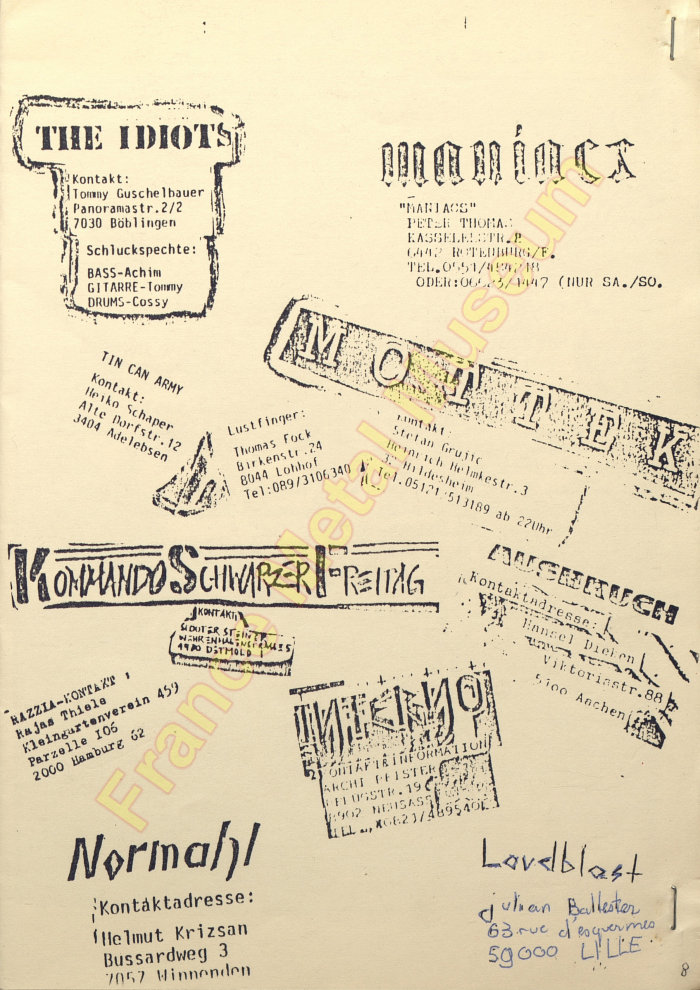 THE IDIOTS
Kontakt:
Tommy Guschelbauer
Panoramastr.2/2
7030 Böblingen
Schluckspechte:
BASS-Achim
GITARRE-Tommy
DRUMS-Cossy
maniacs
"MANIACS"
PETER THOMAS
KASSELERSTR.8
6442 ROTENBURG/F.
ODER: (NUR SA./SO.
MOTTEK
Kontakt
Stefan Grujic
Heinrich Helmkestr.3
Hildesheim
Tel.05121/513189 ab 22Uhr
TIN CAN ARMY
Kontakt:
Heiko Schaper
Alte Dorfstr.12
3404 Adelebsen
Lustfinger:
Thomas Fock
Birkenstr.24
8044 Lohhof
Tel:089/3106340
KOMMANDO SCHWARZER FREITAG
KONTAKT:
WOUTER STEINER
4930 DETMOLD
AUSBRUCH
Kontaktadresse:
Hansel Dieken
Viktoriastr.88
5100 Aachen
RAZZIA-KONTAKT :
Rajas Thiele
Kleingartenverein 459
Parzelle 106
2000 Hamburg 62
INFERNO
KONTAKTINFORMATION
ARCHI PFISTER
PFLUGSTR.19
8902 NEUSÄSS
Normahl
Kontaktadresse:
Helmut Krizsan
Bussardweg 3
7057 Winnenden
Loudblast
julian Ballester
63 rue d'esquermes
59000 LILLE
8
France Metal Museum